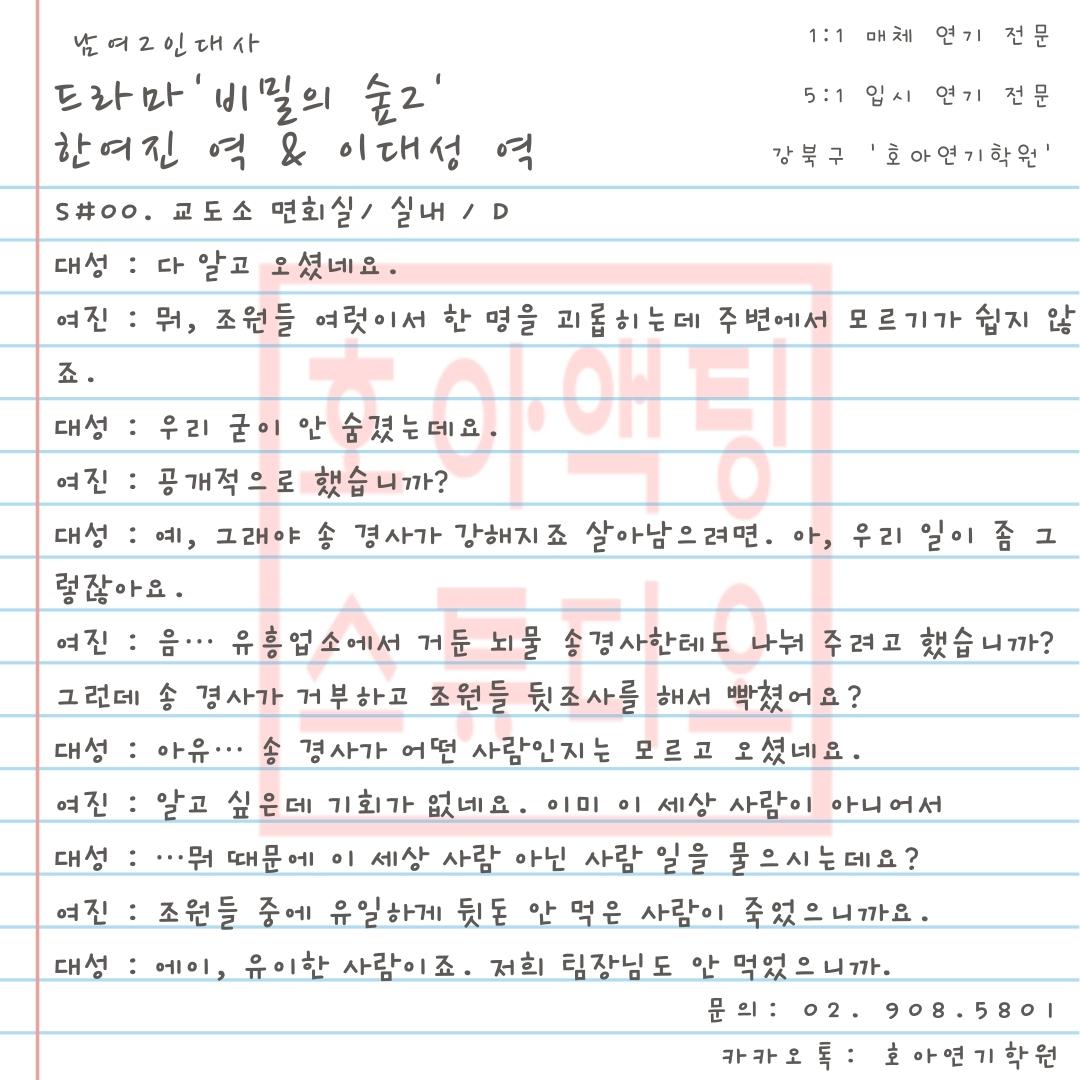 남여2인대사
드라마'비밀의 숲2'
한여진 역 & 이대성 역
1:1 매체 연기 전문
5:1 입시 연기 전문
강북구 '호아연기학원'
S#00. 교도소 면회실/ 실내 / D
대성 : 다 알고 오셨네요.
여진 : 뭐, 조원들 여럿이서 한 명을 괴롭히는데 주변에서 모르기가 쉽지 않
죠.
대성 : 우리 굳이 안 숨겼는데요.
여진 : 공개적으로 했습니까?
대성 : 예, 그래야 송 경사가 강해지죠 살아남으려면. 아, 우리 일이 좀 그
렇잖아요.
여진 : 음… 유흥업소에서 거둔 뇌물 송경사한테도 나눠 주려고 했습니까?
그런데 송 경사가 거부하고 조원들 뒷조사를 해서 빡쳤어요?
대성 : 아유… 송 경사가 어떤 사람인지는 모르고 오셨네요.
여진 : 알고 싶은데 기회가 없네요. 이미 이 세상 사람이 아니어서
대성 : …뭐 때문에 이 세상 사람 아닌 사람 일을 물으시는데요?
여진 : 조원들 중에 유일하게 뒷돈 안 먹은 사람이 죽었으니까요.
대성 : 에이, 유이한 사람이죠. 저희 팀장님도 안 먹었으니까.
호아액팅
스튜디오
문의: 02. 908.5801
카카오톡: 호아연기학원